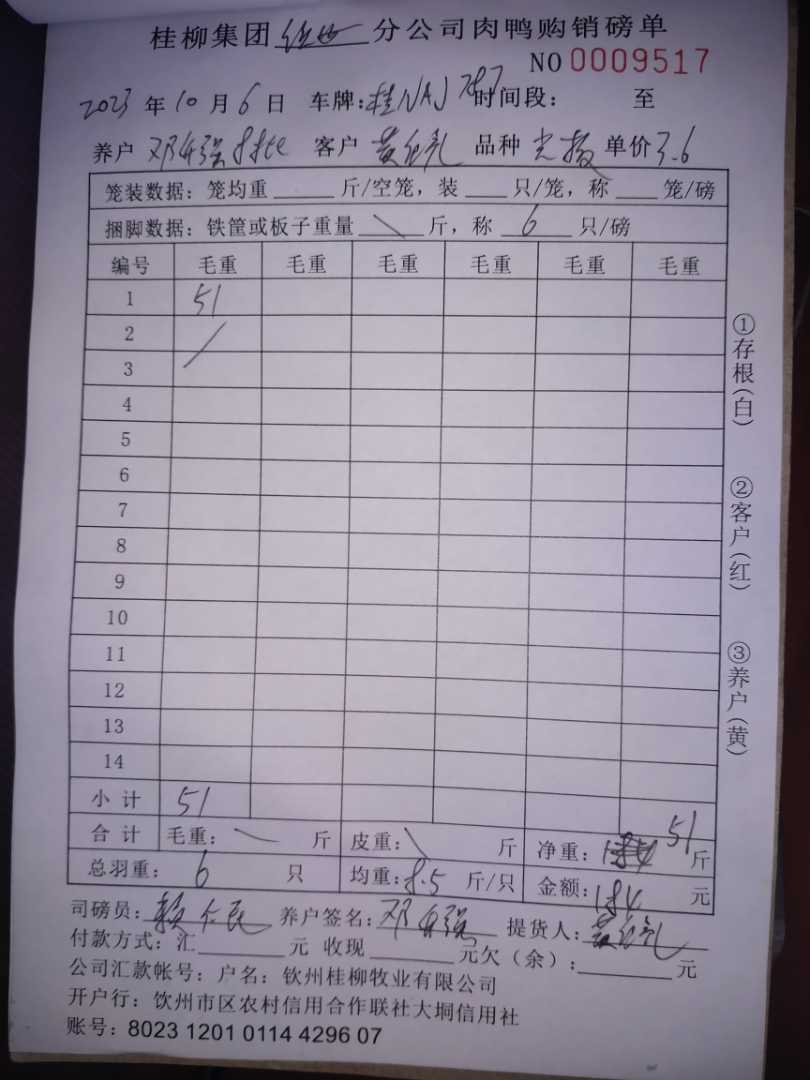 桂柳集团 分公司肉鸭购销磅单
NO 0009517
2023 年 10 月 6 日 车牌:桂NAJ787 时间段: 至
养户 邓 强 客户 黄 礼 品种 单价 3.6
笼装数据: 笼均重 斤/空笼, 装 只/笼, 称 笼/磅
捆脚数据: 铁筐或板子重量 \ 斤, 称 6 只/磅
编号 毛重 毛重 毛重 毛重 毛重 毛重
1 51
2 /
3
4
5
6
7
8
9
10
11
12
13
14
小 计 51
合 计 毛重: \ 斤 皮重: \ 斤 净重: 51 斤
总羽重: 6 只 均重: 8.5 斤/只 金额: 184 元
司磅员: 赖 民 养户签名: 邓 强 提货人: 黄 礼
付款方式: 汇 元 收现 元欠(余): 元
公司汇款帐号: 户名: 钦州桂柳牧业有限公司
开户行: 饮州市区农村信用合作联社大垌信用社
账号: 8023 1201 0114 4296 07
①存根(白)
②客户(红)
③养户(黄)